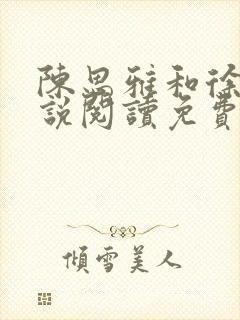 陳思雅和徐
說閱讀免費
傾雪美人